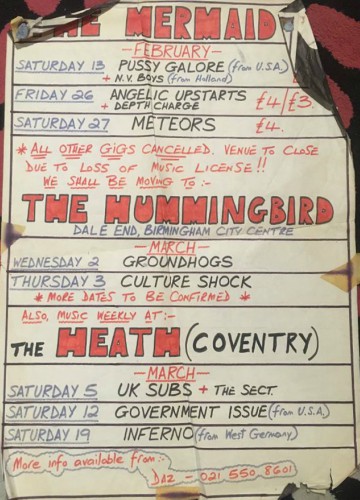 THE MERMAID
—FEBRUARY—
SATURDAY 13 PUSSY GALORE (from U.S.A.)
+ N.V. BOYS (from Holland)
FRIDAY 26 ANGELIC UPSTARTS £4/£3.
+ DEPTH CHARGE
SATURDAY 27 METEORS £4.
* ALL OTHER GIGS CANCELLED. VENUE TO CLOSE
DUE TO LOSS OF MUSIC LICENSE!!
WE SHALL BE MOVING TO:-
THE HUMMINGBIRD
DALE END, BIRMINGHAM CITY CENTRE
—MARCH—
WEDNESDAY 2 GROUNDHOGS
THURSDAY 3 CULTURE SHOCK
* MORE DATES TO BE CONFIRMED *
ALSO, MUSIC WEEKLY AT:-
THE HEATH (COVENTRY)
—MARCH—
SATURDAY 5 UK SUBS + THE SECT.
SATURDAY 12 GOVERNMENT ISSUE (from U.S.A.)
SATURDAY 19 INFERNO (from West Germany)
More info available from:-
DAZ - 021 550 8601